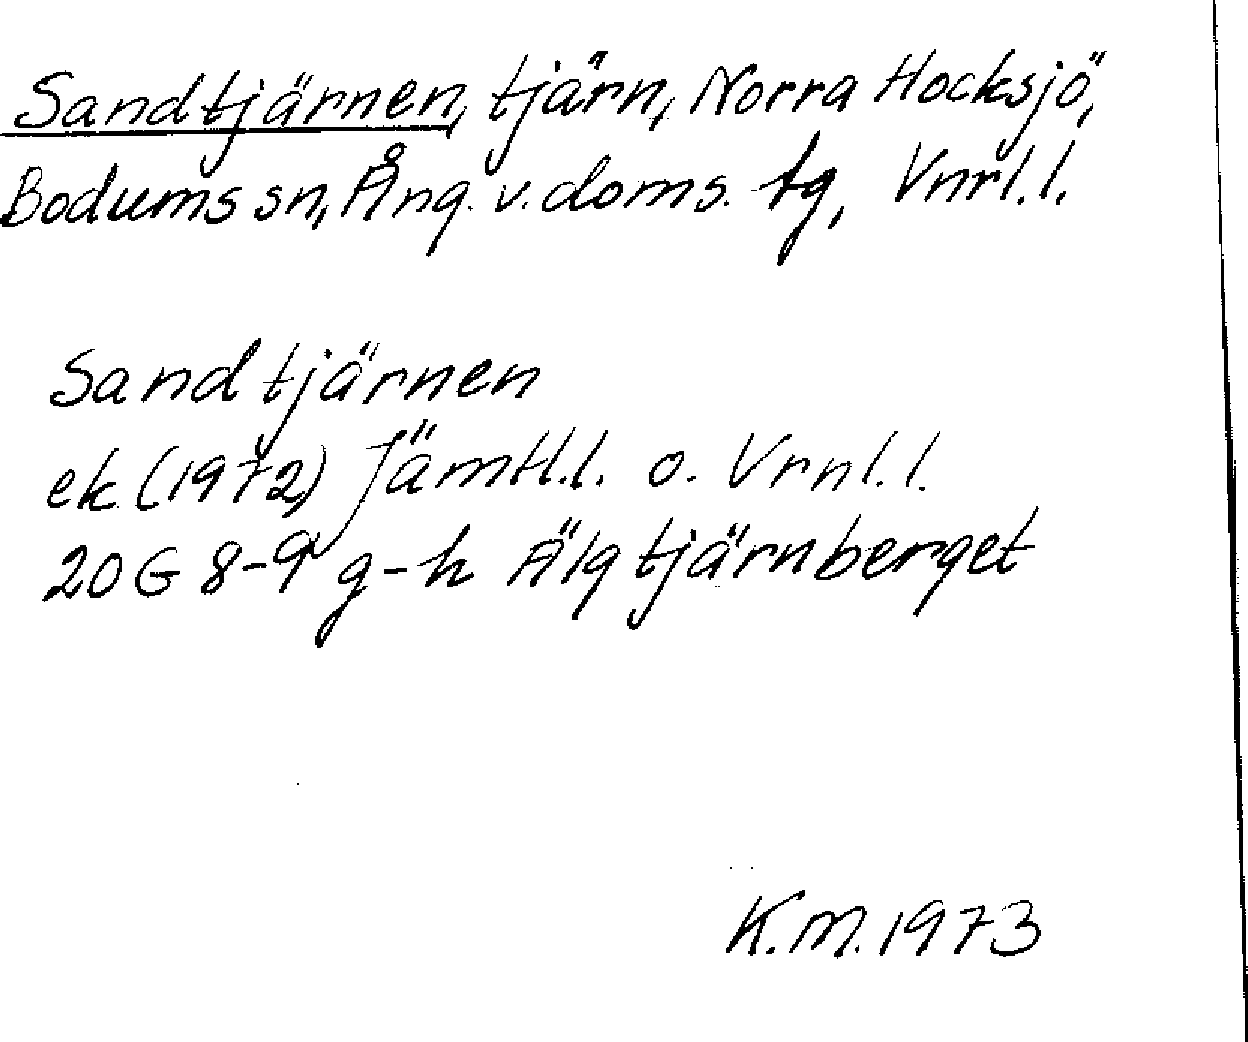 Sandtjärnen, tjärn, Norra Hocksjö,
Bodums sn, Ång. v. doms. tg, Vnrl. l.
Sandtjärnen
ek. (1972) Jämtl. l. o. Vrnl. l.
20 G 8-9 g-h Älgtjärnberget
K.M. 1973